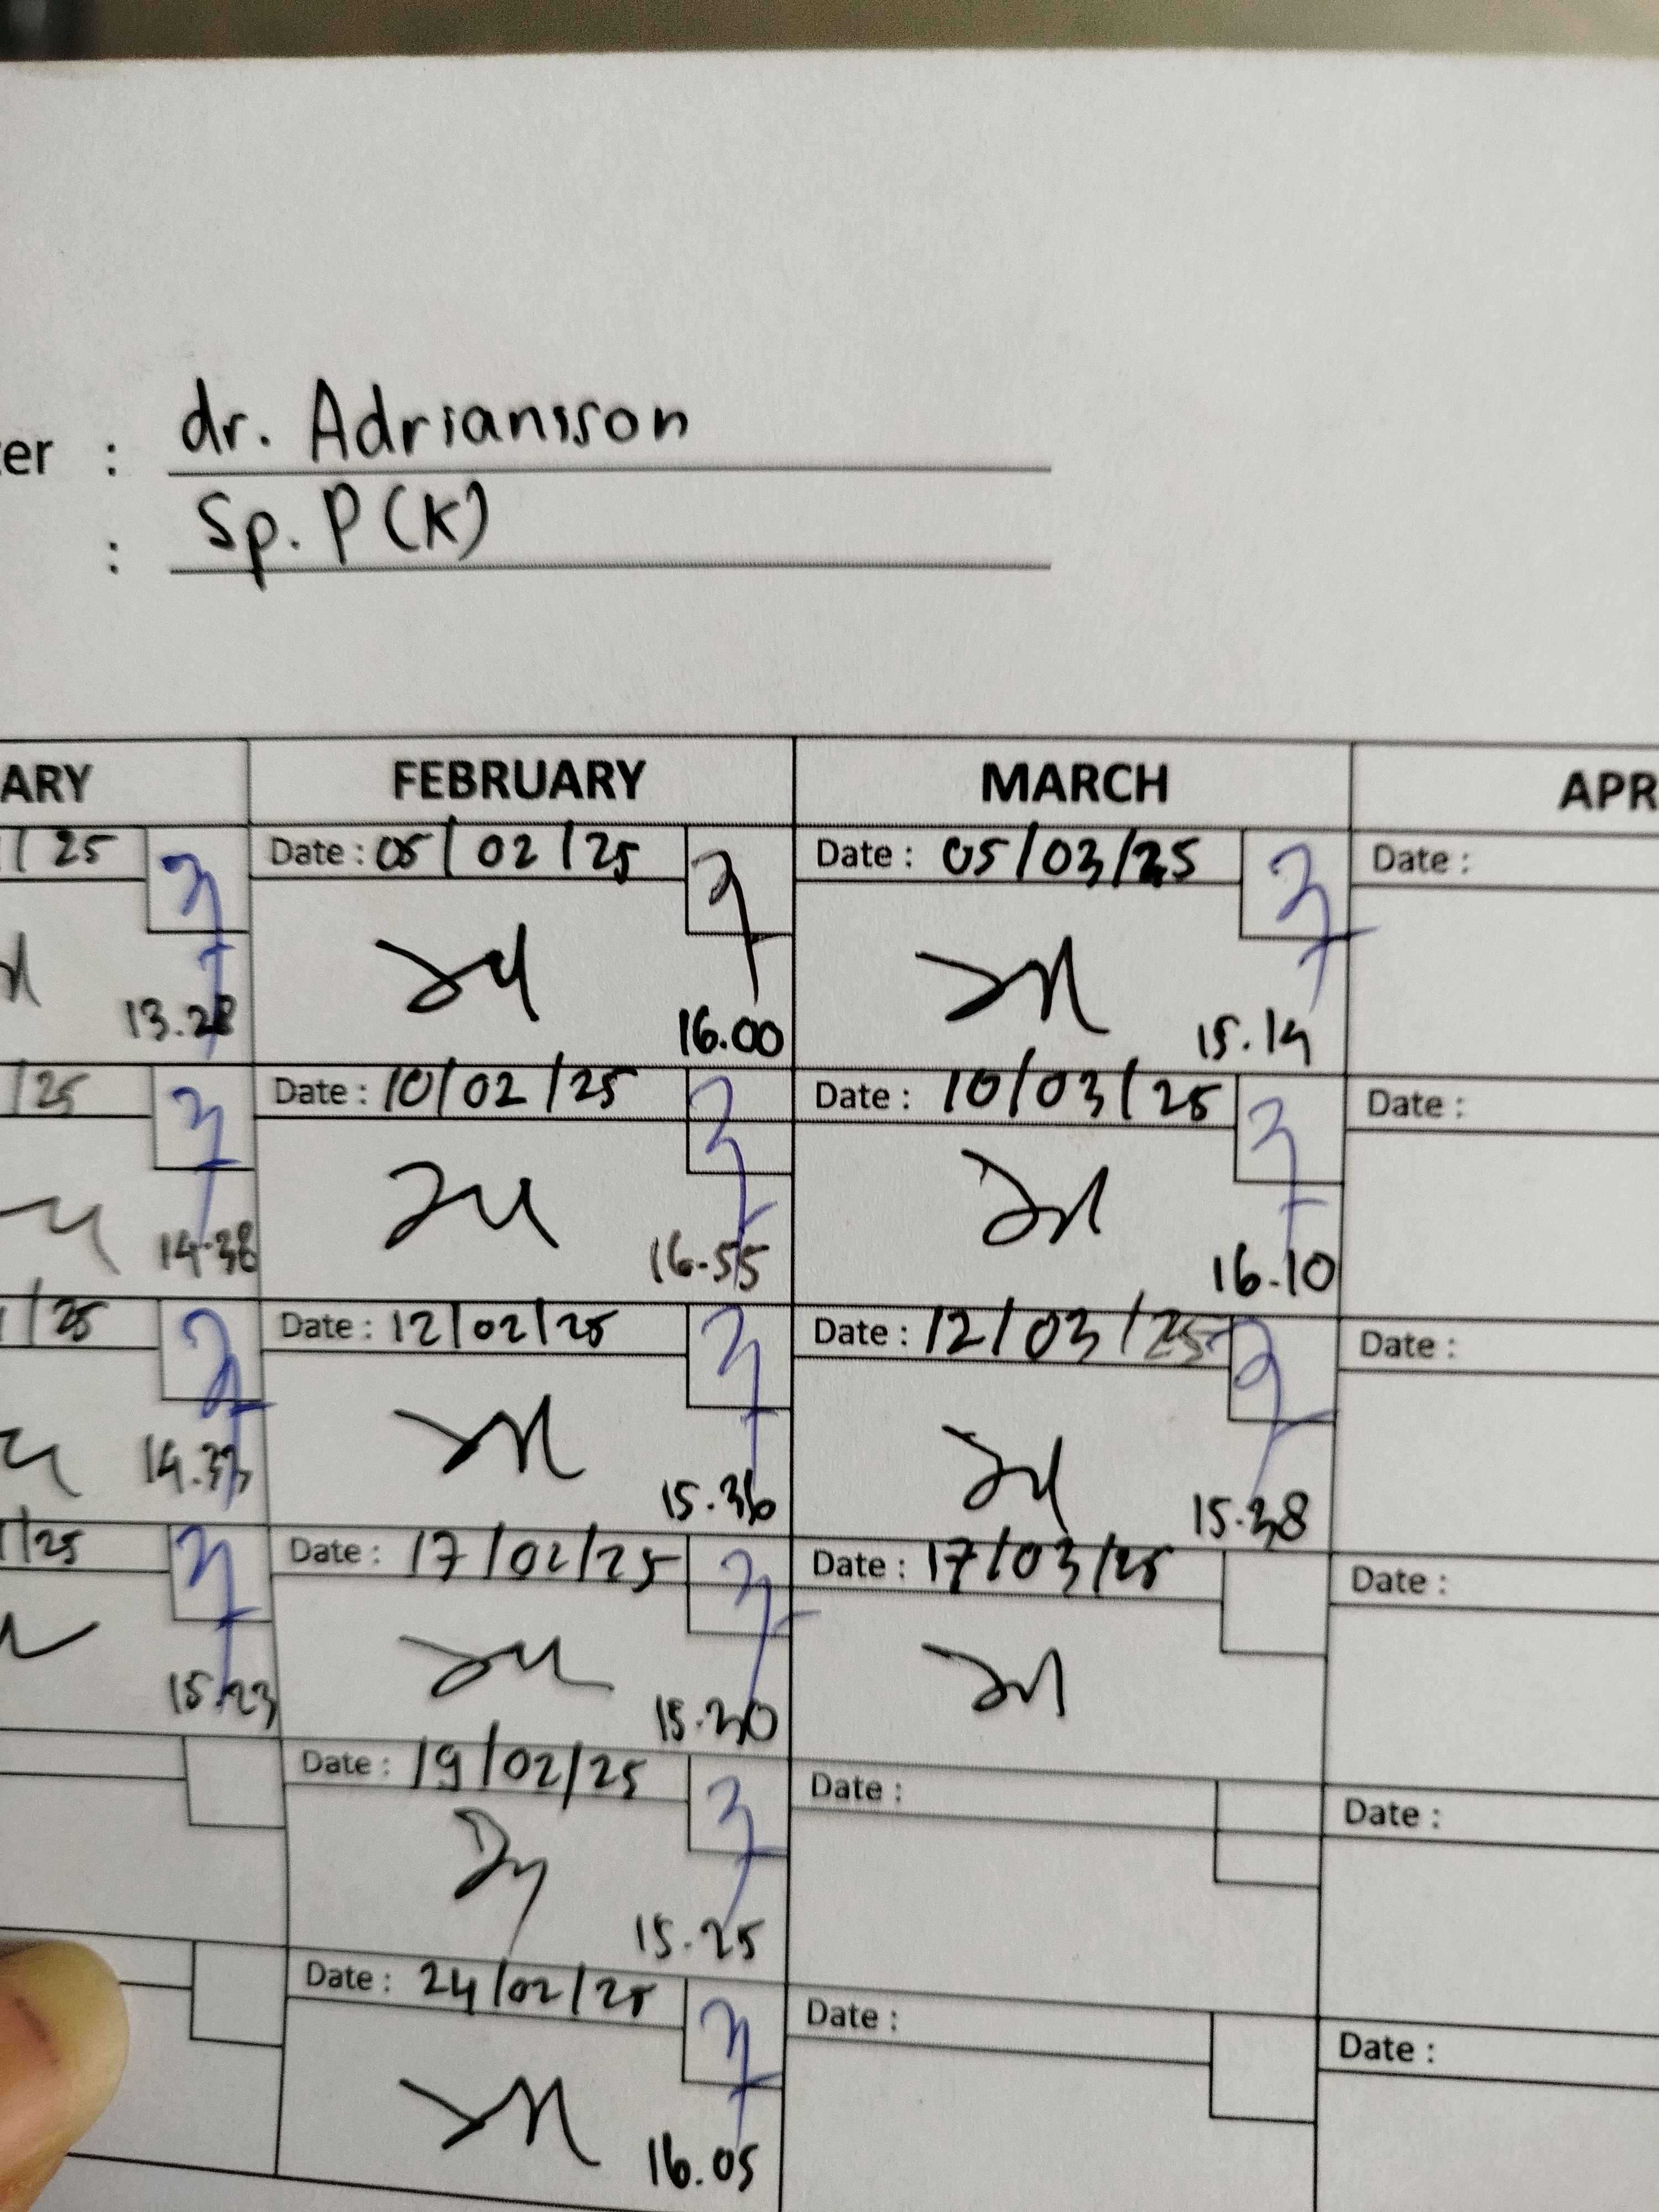 er : dr. Adriansson
: Sp. P(K)
ARY FEBRUARY MARCH APR
/25 Date : 05/02/25 Date : 05/03/25 Date :
13.28 16.00 15.14
/25 Date : 10/02/25 Date : 10/03/25 Date :
14.38 16.55 16.10
/25 Date : 12/02/25 Date : 12/03/25 Date :
14.33 15.36 15.38
/25 Date : 17/02/25 Date : 17/03/25 Date :
15.23 15.30
Date : 19/02/25 Date : Date :
15.25
Date : 24/02/25 Date : Date :
16.05